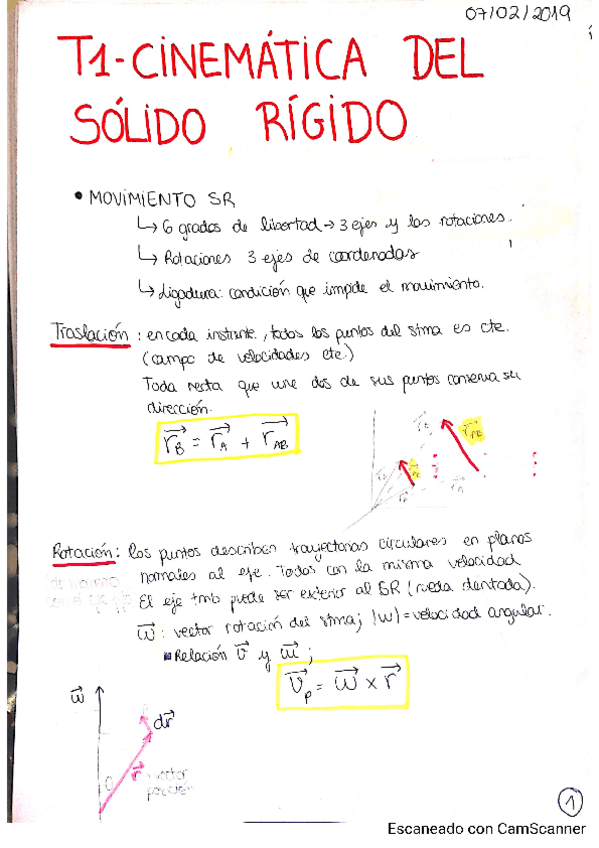 07/02/2019
T1-CINEMÁTICA DEL
SÓLIDO RÍGIDO
• MOVIMIENTO SR
↳ 6 grados de libertad → 3 ejes y las rotaciones.
↳ Rotaciones 3 ejes de coordenadas
↳ Ligadura: condición que impide el movimiento.
Traslación: en cada instante, todos los puntos del stma es cte.
(campo de velocidades cte.)
Toda recta que une dos de sus puntos conserva su
dirección.
r⃗B = r⃗A + r⃗AB
r⃗AB
Rotación: los puntos describen trayectorias circulares en planos
normales al eje. Todos con la misma velocidad
El eje tmb puede ser exterior al SR (rueda dentada).
w⃗: vector rotación del stma; |w| = velocidad angular.
Relación v⃗ y w⃗;
v⃗p = w⃗ × r⃗
w⃗
dr⃗
r⃗ vector
posición
1
Escaneado con CamScanner